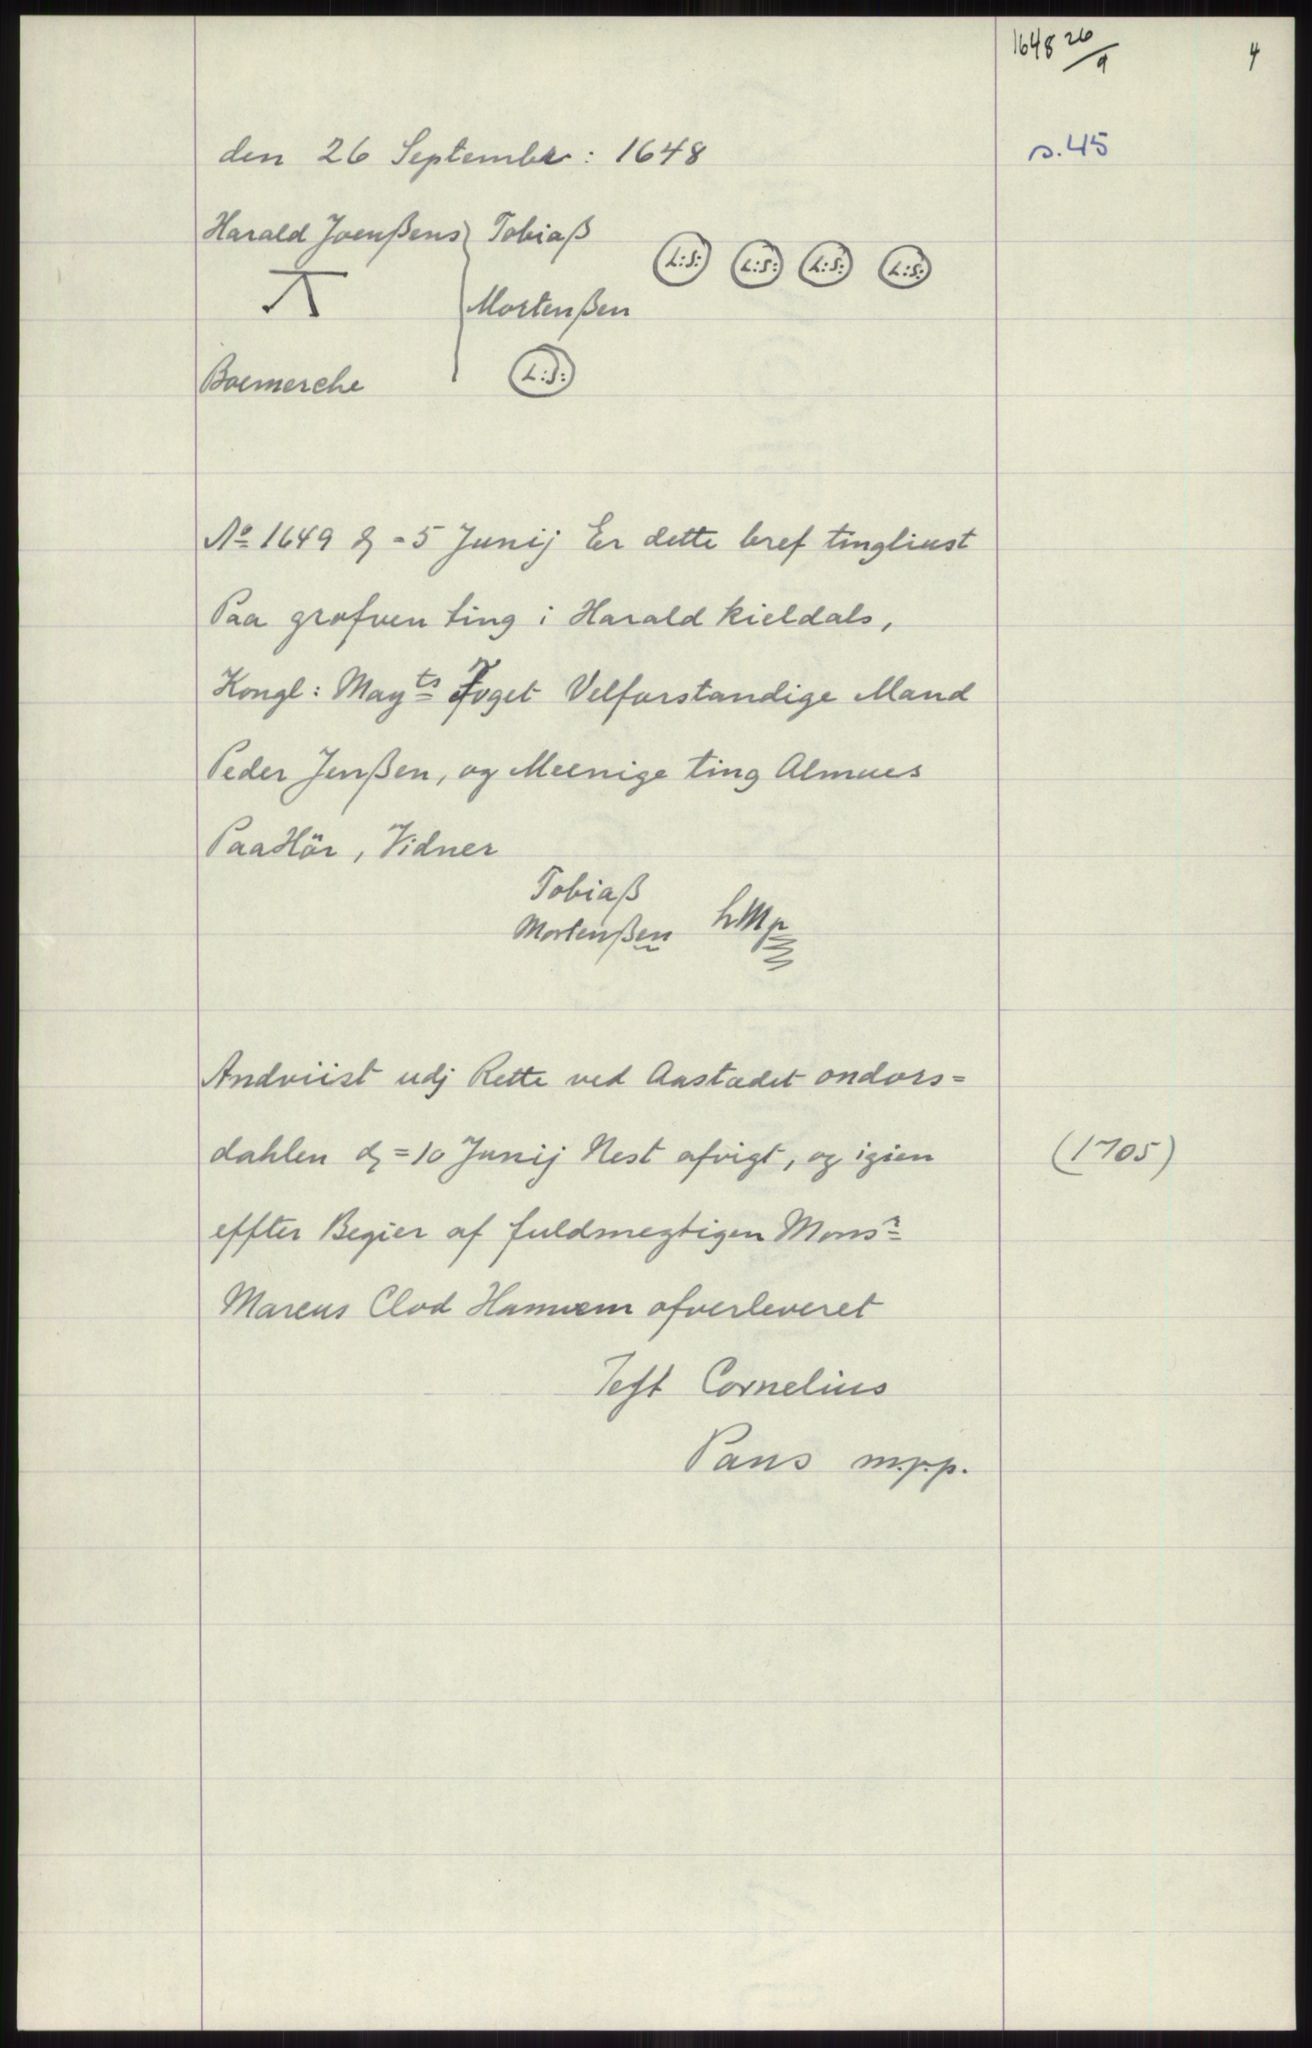 1648 26/9
4
den 26 Septembr: 1648
s. 45
Harald Joenßens Tobiaß
L:S: L:S: L:S: L:S:
Mortenßen
Boemerche L:S:
No 1649 d -5 Junij Er dette bref tingliust
Paa grofven ting i Harald kieldals,
Kongl: Mayts Foget Velforstandige Mand
Peder Jenßen, og Meenige ting Almues
PaaHör, Vidner
Tobiaß
Mortenßen hMp
Andviist udj Rette ved Aastædet ondors=
dahlen d =10 Junij Nest afvigt, og igien
(1705)
effter Begier af fuldmegtigen Monsr
Marcus Clod ofverleveret
Test Cornelius
Pans m.p.p.